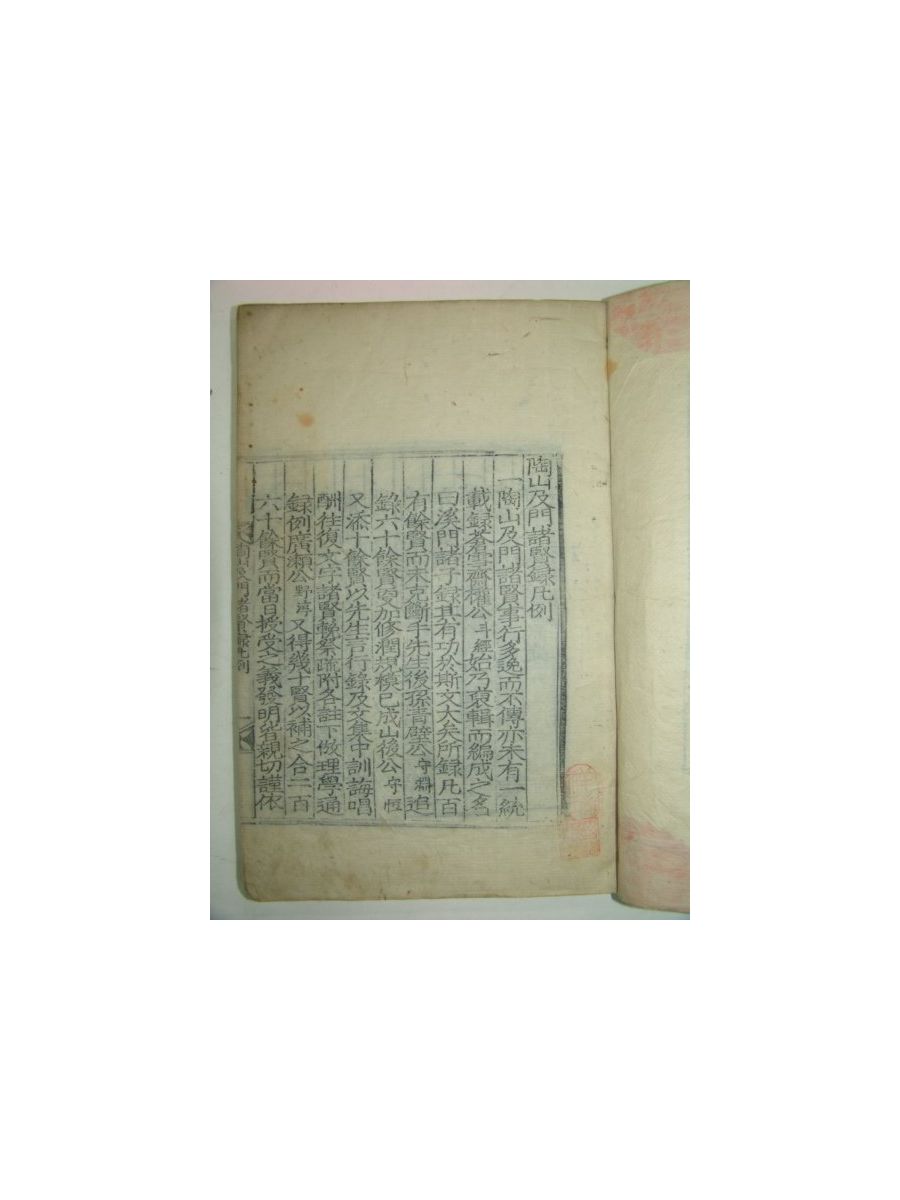 陶山及門諸賢錄凡例
一陶山及門諸賢事行多逸而不傳亦未有一統
載錄蒼雪齋權公斗經始乃裒輯而編成之名
曰溪門諸子錄其有功於斯文大矣所錄凡百
有餘賢而未克斷手先生後孫青壁公守淵追
錄六十餘賢更加修潤規模已成山後公守恒
又添十餘賢以先生言行錄及文集中訓誨唱
酬往復文字諸賢輓祭疏附各註下倣理學通
錄例廣瀨公野淳又得幾十賢以補之合二百
六十餘賢而當日授受之義發明皆親切謹依